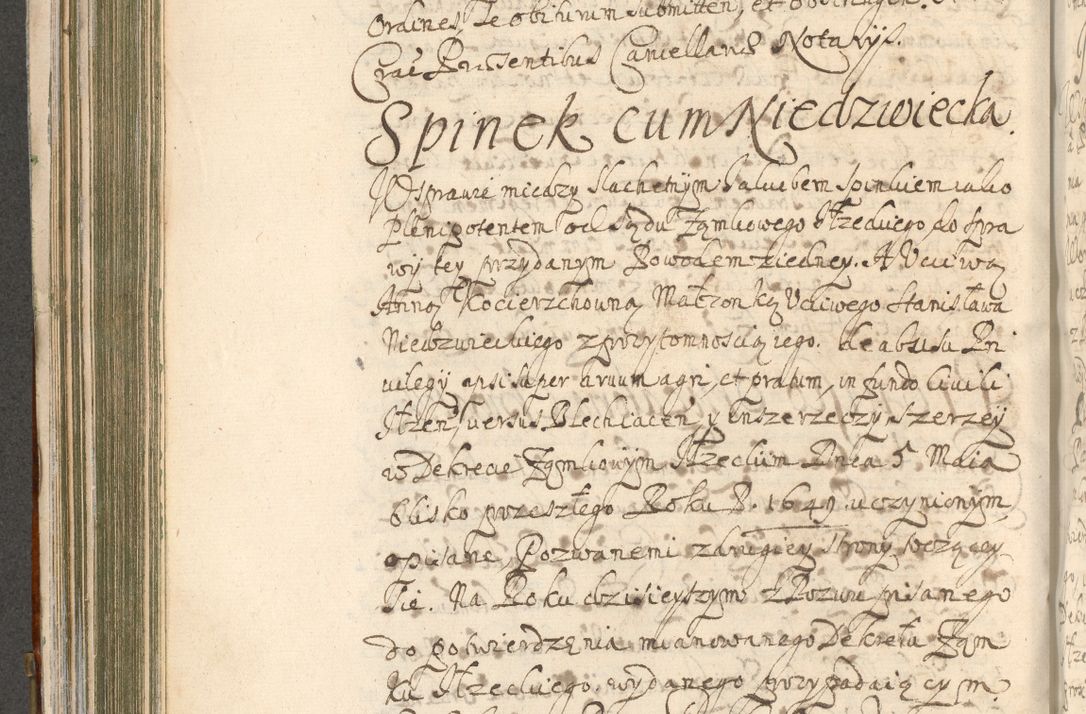 Ordines, se obiturum submitten, et obstringen.
Crac Praesentibus Cancellariae Notarijs.
Spinek cum Niedzwiecka.
W sprawie miedzy slachetnym Jakubem Spinkiem iako
Plenipotentem od sądu Zamkowego Ilzeckiego do spra
wy tey przydanym Powodem ziedney. A Vcciwą
Anną Kocierzchowną Małzonką Vcciwego Stanisława
Niedzwieckiego z przytomnoscią iego. de abusu Pri
uilegÿ apsi super aruum agri, et pratum, in fundo ciuili
Ilzen, versus Blechlacen, y insze rzeczy szerzey
w Dekrecie Zamkowym Ilzeckim Dnia 5 Maia
blisko przeszłego Roku P. 1649 uczynionym,
opisane, Pozwanemi z drugiey strony toczącey
sie. Na Roku dzisieyszym z Pozwu pisanego
do potwierdzenia mianowanego Dekretu Zam
ku Ilzeckiego, wydanego przypadaiącym.